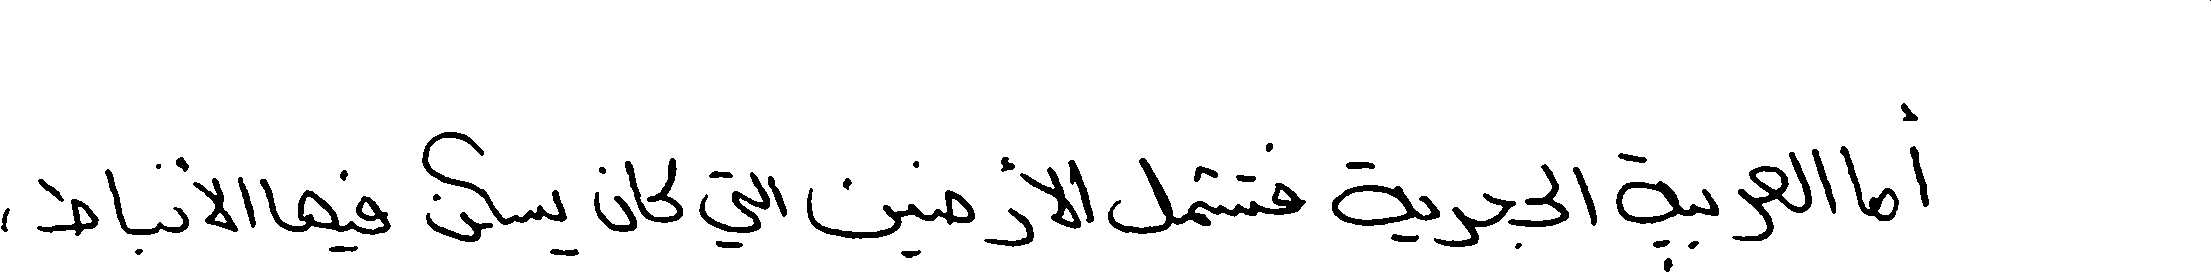 أما العربية الحجرية فتشمل الأرضين التي كان يسكن فيها الأنباط،